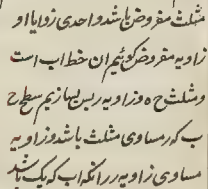 مثلث مفروض باشد و احدی زوایا او
زاویه مفروض کوئیم ان خط اب است
و مثلث ح ه وزاویه ر پس بسازیم سطح ح
ب که ر مساوی مثلث باشد وزاویه
مساوی زاویه ر رانکه اب که یک